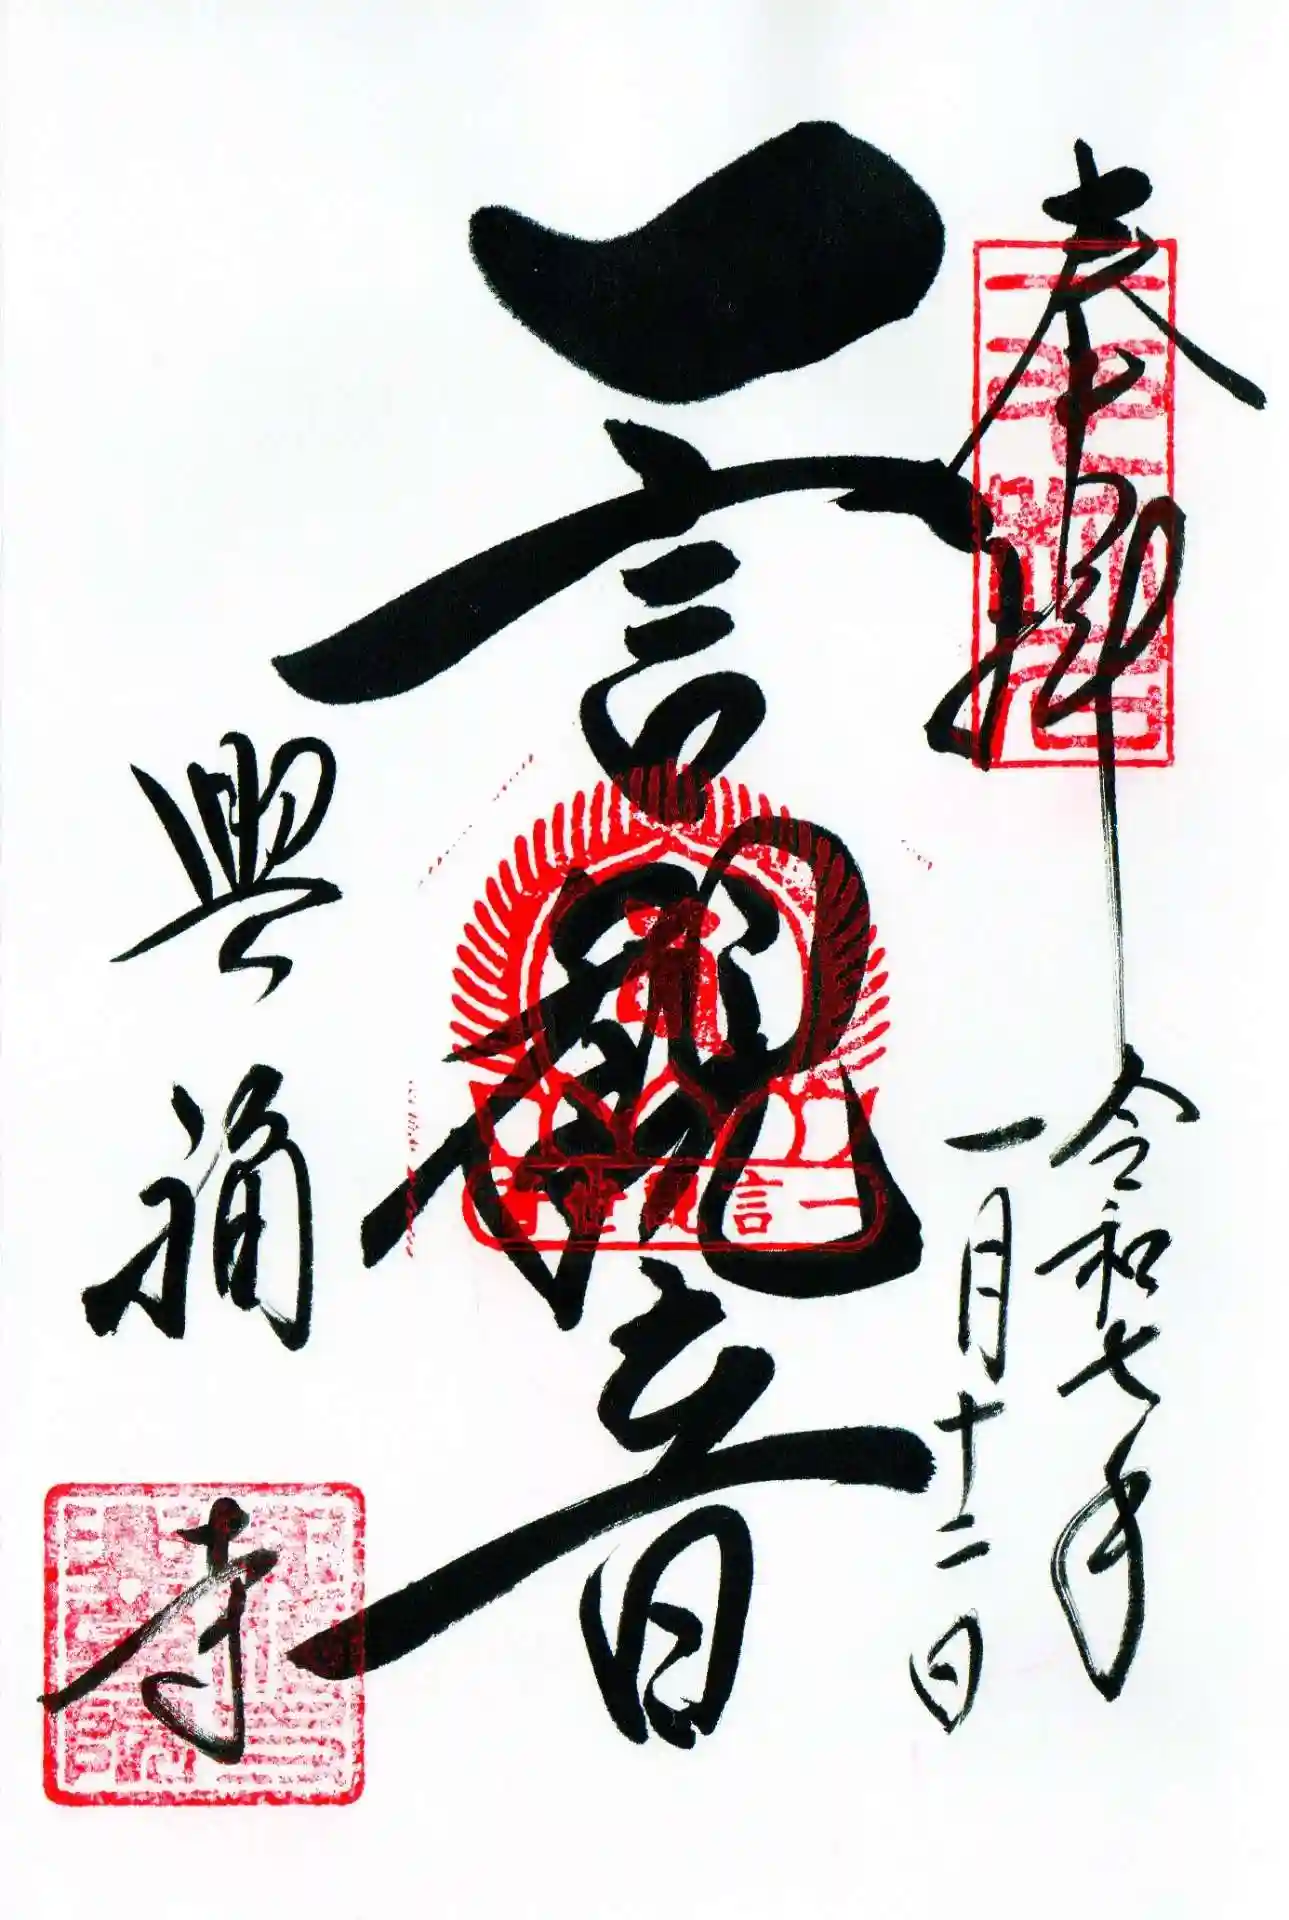 奉拝
令和七年
一月十二日
一言観音
一言観世音
興福
寺